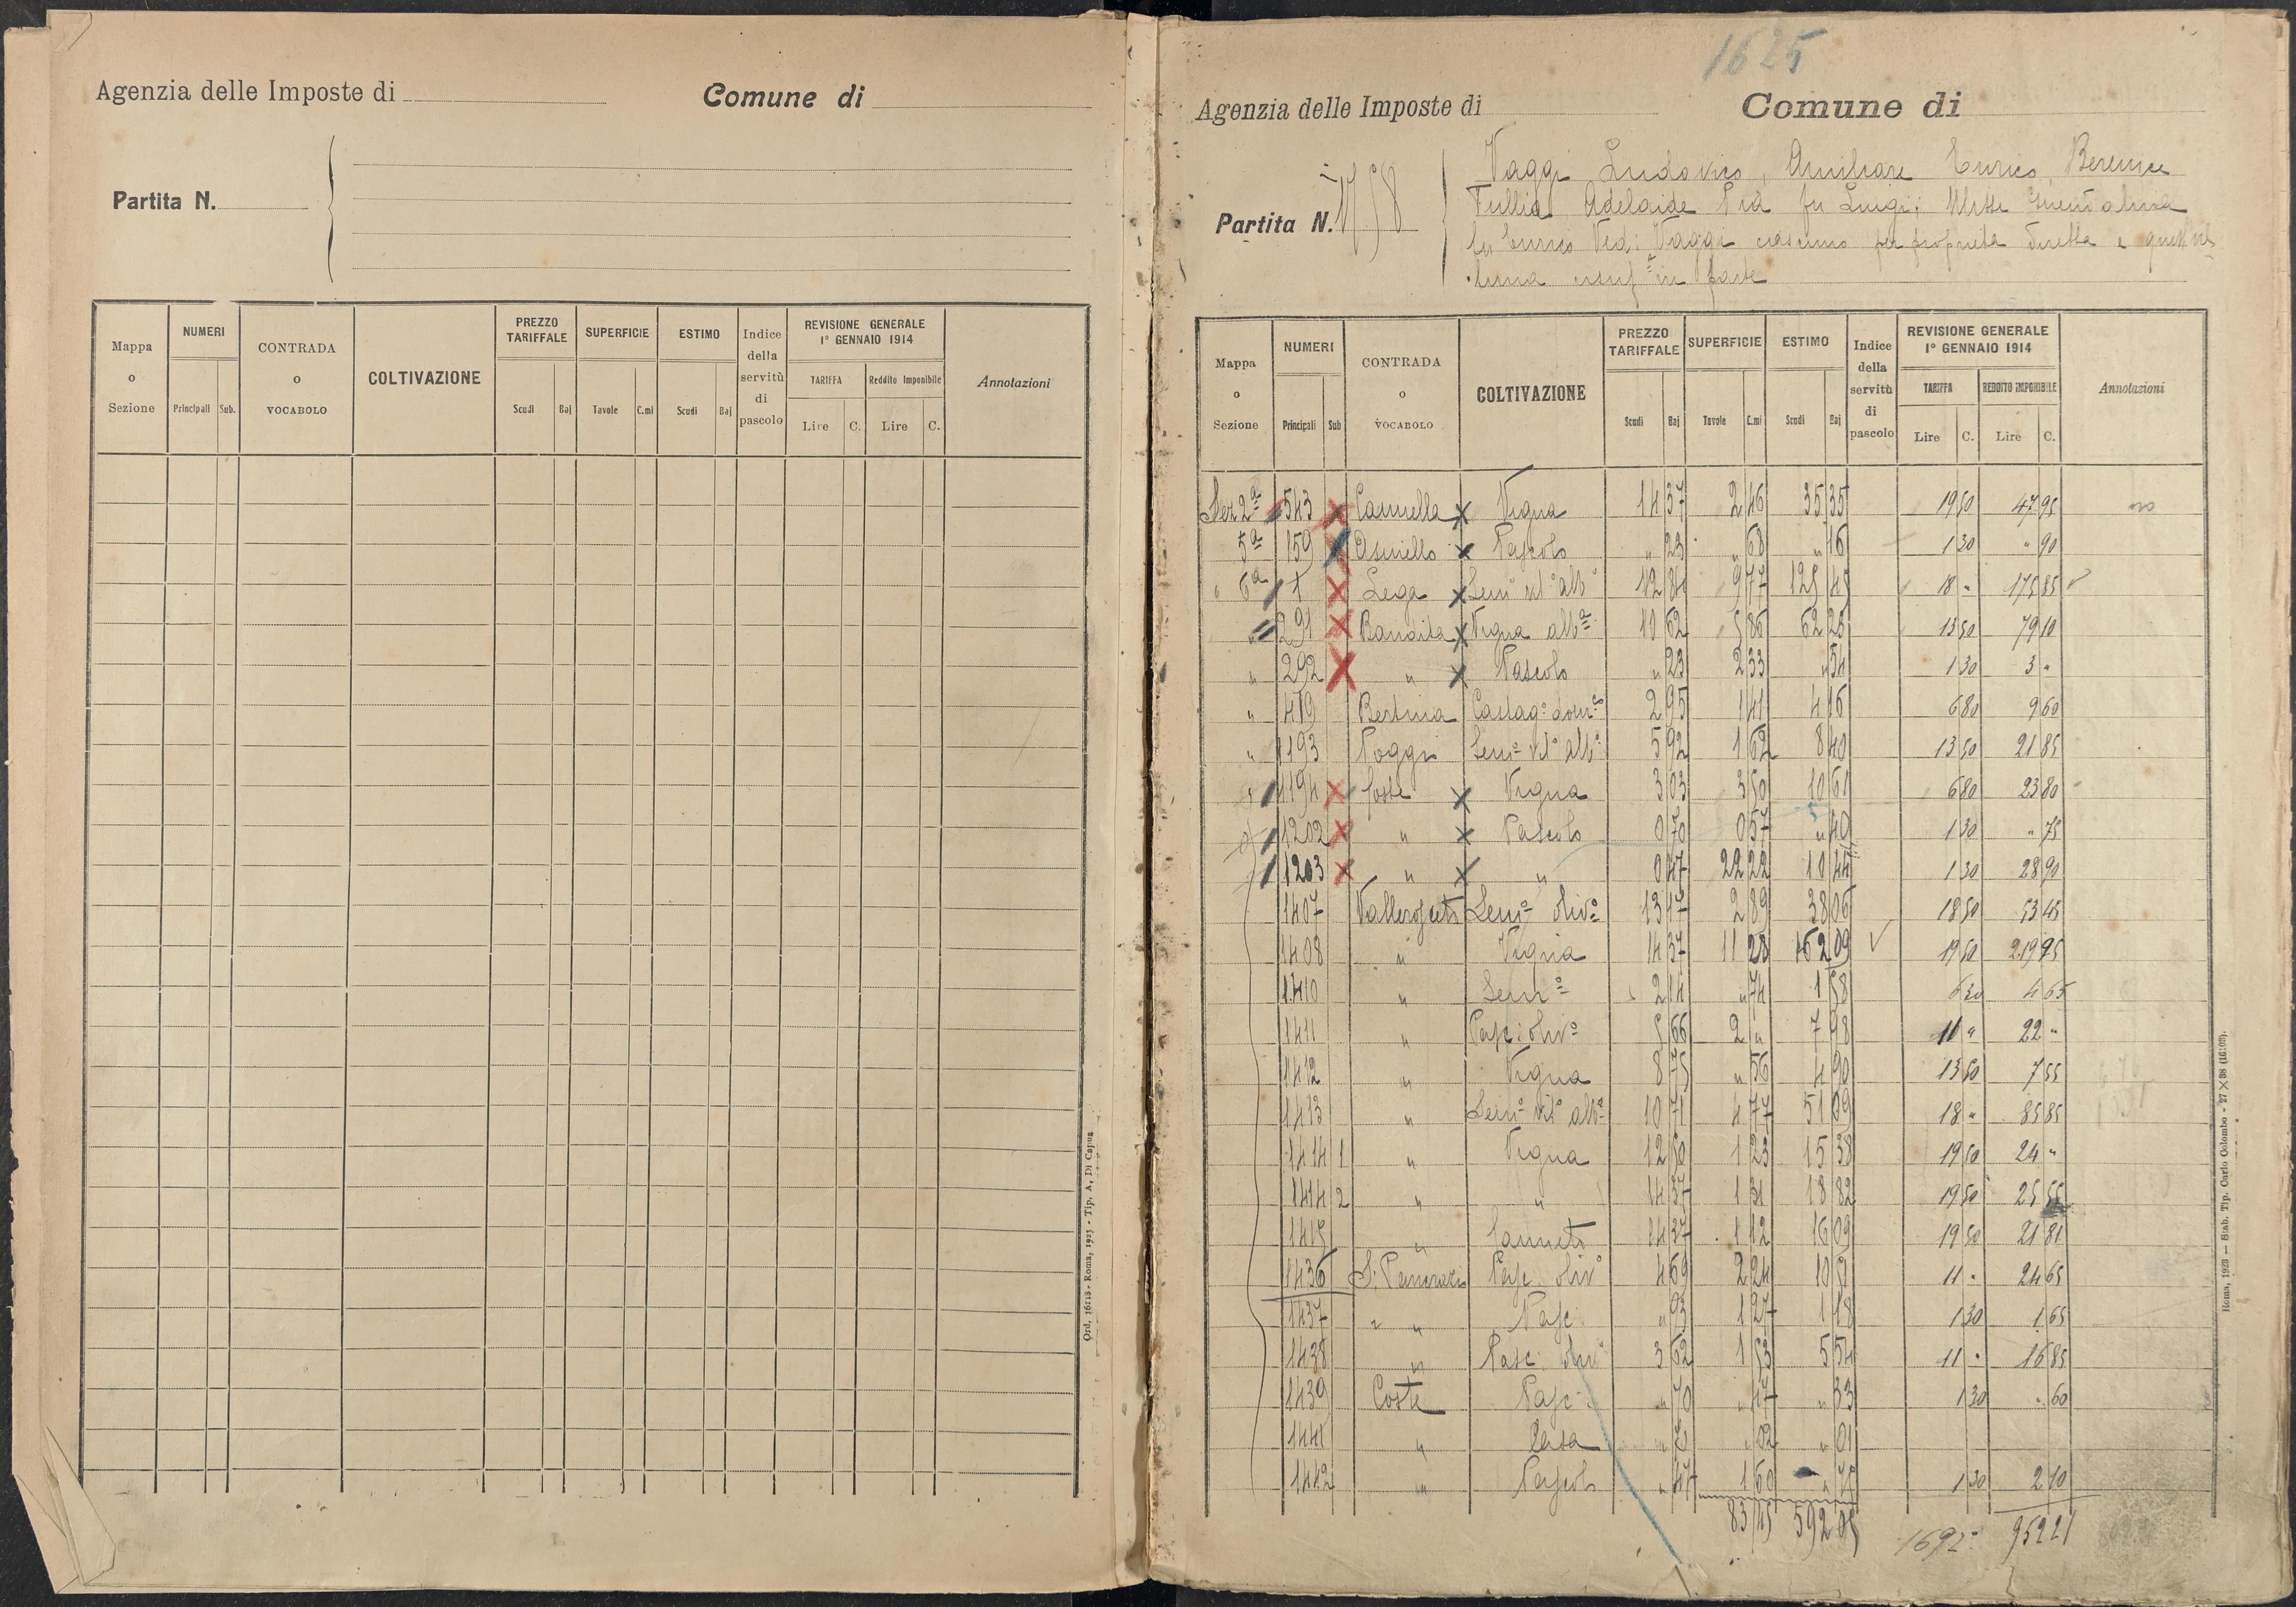 Agenzia delle Imposte di
Comune di
Partita N.
Mappa o Sezione
NUMERI
Principali
Sub.
CONTRADA o VOCABOLO
COLTIVAZIONE
PREZZO TARIFFALE
Scudi
Baj
SUPERFICIE
Tavole
C.mi
ESTIMO
Scudi
Baj
Indice della servitù di pascolo
REVISIONE GENERALE 1° GENNAIO 1914
TARIFFA
Reddito Imponibile
Lire C. Lire C.
Annotazioni
Ord. 16118 - Roma, 1923 - Tip. A. Di Capua
1625
Agenzia delle Imposte di
Comune di
Partita N. 1758
Vaggi Ludovico, Amilcare Enrico, Berenice
Tullia Adelaide Pia fu Luigi:
fu Enrico Ved: Vaggi ciascuno per proprietà diretta e
in parte
Mappa o Sezione
NUMERI
Principali
Sub
CONTRADA o VOCABOLO
COLTIVAZIONE
PREZZO TARIFFALE
Scudi
Baj
SUPERFICIE
Tavole
C.mi
ESTIMO
Scudi
Baj
Indice della servitù di pascolo
REVISIONE GENERALE 1° GENNAIO 1914
TARIFFA
REDDITO IMPONIBILE
Lire C. Lire C.
Annotazioni
Sez 2ª 543 x Cannella x Vigna 14 37 2 46 35 35 19 50 47 95
5ª 159 x Asinello x Pascolo " 23 " 68 " 16 1 30 " 90
" 6ª 1 x Lega x Semº vitº albº 12 84 9 77 125 45 18 " 175 85
" 291 x Bandita x Vigna albª 10 62 5 86 62 23 13 50 79 10
" 292 x " x Pascolo " 23 2 33 " 54 1 30 3 "
" 419 Bertina Castagº domº 2 95 1 41 4 16 6 80 9 60
" 1193 Poggi Semº vitº albº 5 92 1 62 8 40 13 50 21 85
" 1194 x Coste x Vigna 3 03 3 50 10 61 6 80 23 80
1202 x " x Pascolo 0 70 0 57 " 40 1 30 " 75
1203 x " x " 0 47 22 22 10 44 1 30 28 90
1407 Semº olivº 13 17 2 89 38 06 18 50 53 45
1408 " Vigna 14 37 11 28 162 09 19 50 219 95
1410 " Semº 2 14 " 74 1 58 6 30 4 65
1411 " Pasc: olivº 3 66 2 " 7 98 11 " 22 "
1412 " Vigna 8 75 " 56 4 90 13 50 7 55
1413 " Semº vitº albº 10 71 4 77 51 09 18 " 85 85
1414 1 " Vigna 12 50 1 23 15 38 19 50 24 "
1414 2 " " 14 37 1 31 18 82 19 50 25 55
1415 " Canneto 14 37 1 12 16 09 19 50 21 81
1436 S. Pancrazio Pasc: olivº 4 69 2 24 10 51 11 " 24 65
1437 " " Pasc: " 93 1 27 1 18 1 30 1 65
1438 " Pasc: olivº 3 62 1 53 5 54 11 " 16 85
1439 Coste Pasc: " 70 " 47 " 33 1 30 " 60
1441 " Casa " 02 " 01
1442 " Pascolo " 47 1 60 " 75 1 30 2 10
83 45 592 05 1692 952 21
Roma, 1923 — Stab. Tip. Carlo Colombo - 27 × 38 (16103).